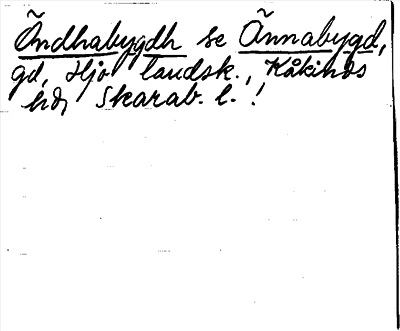 Õndhabygdh se Õnnabygd,
gd, Hjo landsk., Kåkinds
hd, Skarab. l. !